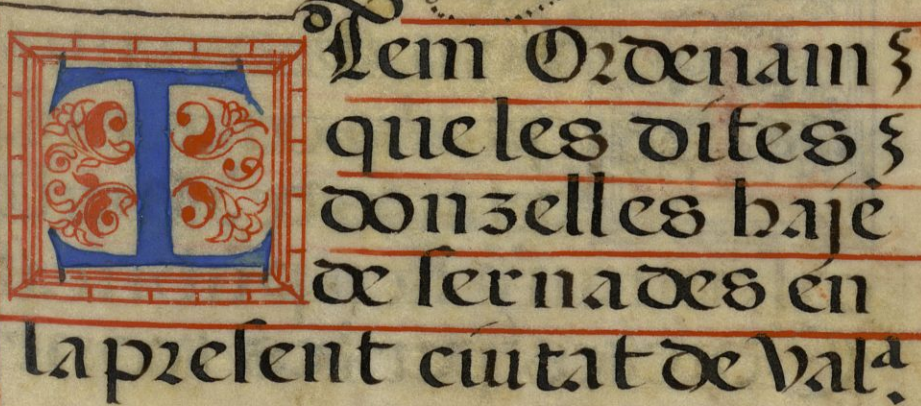 ITem Ordenam
que les dites
donzelles hajē
de ser nades en
la present ciutat de Val.ª